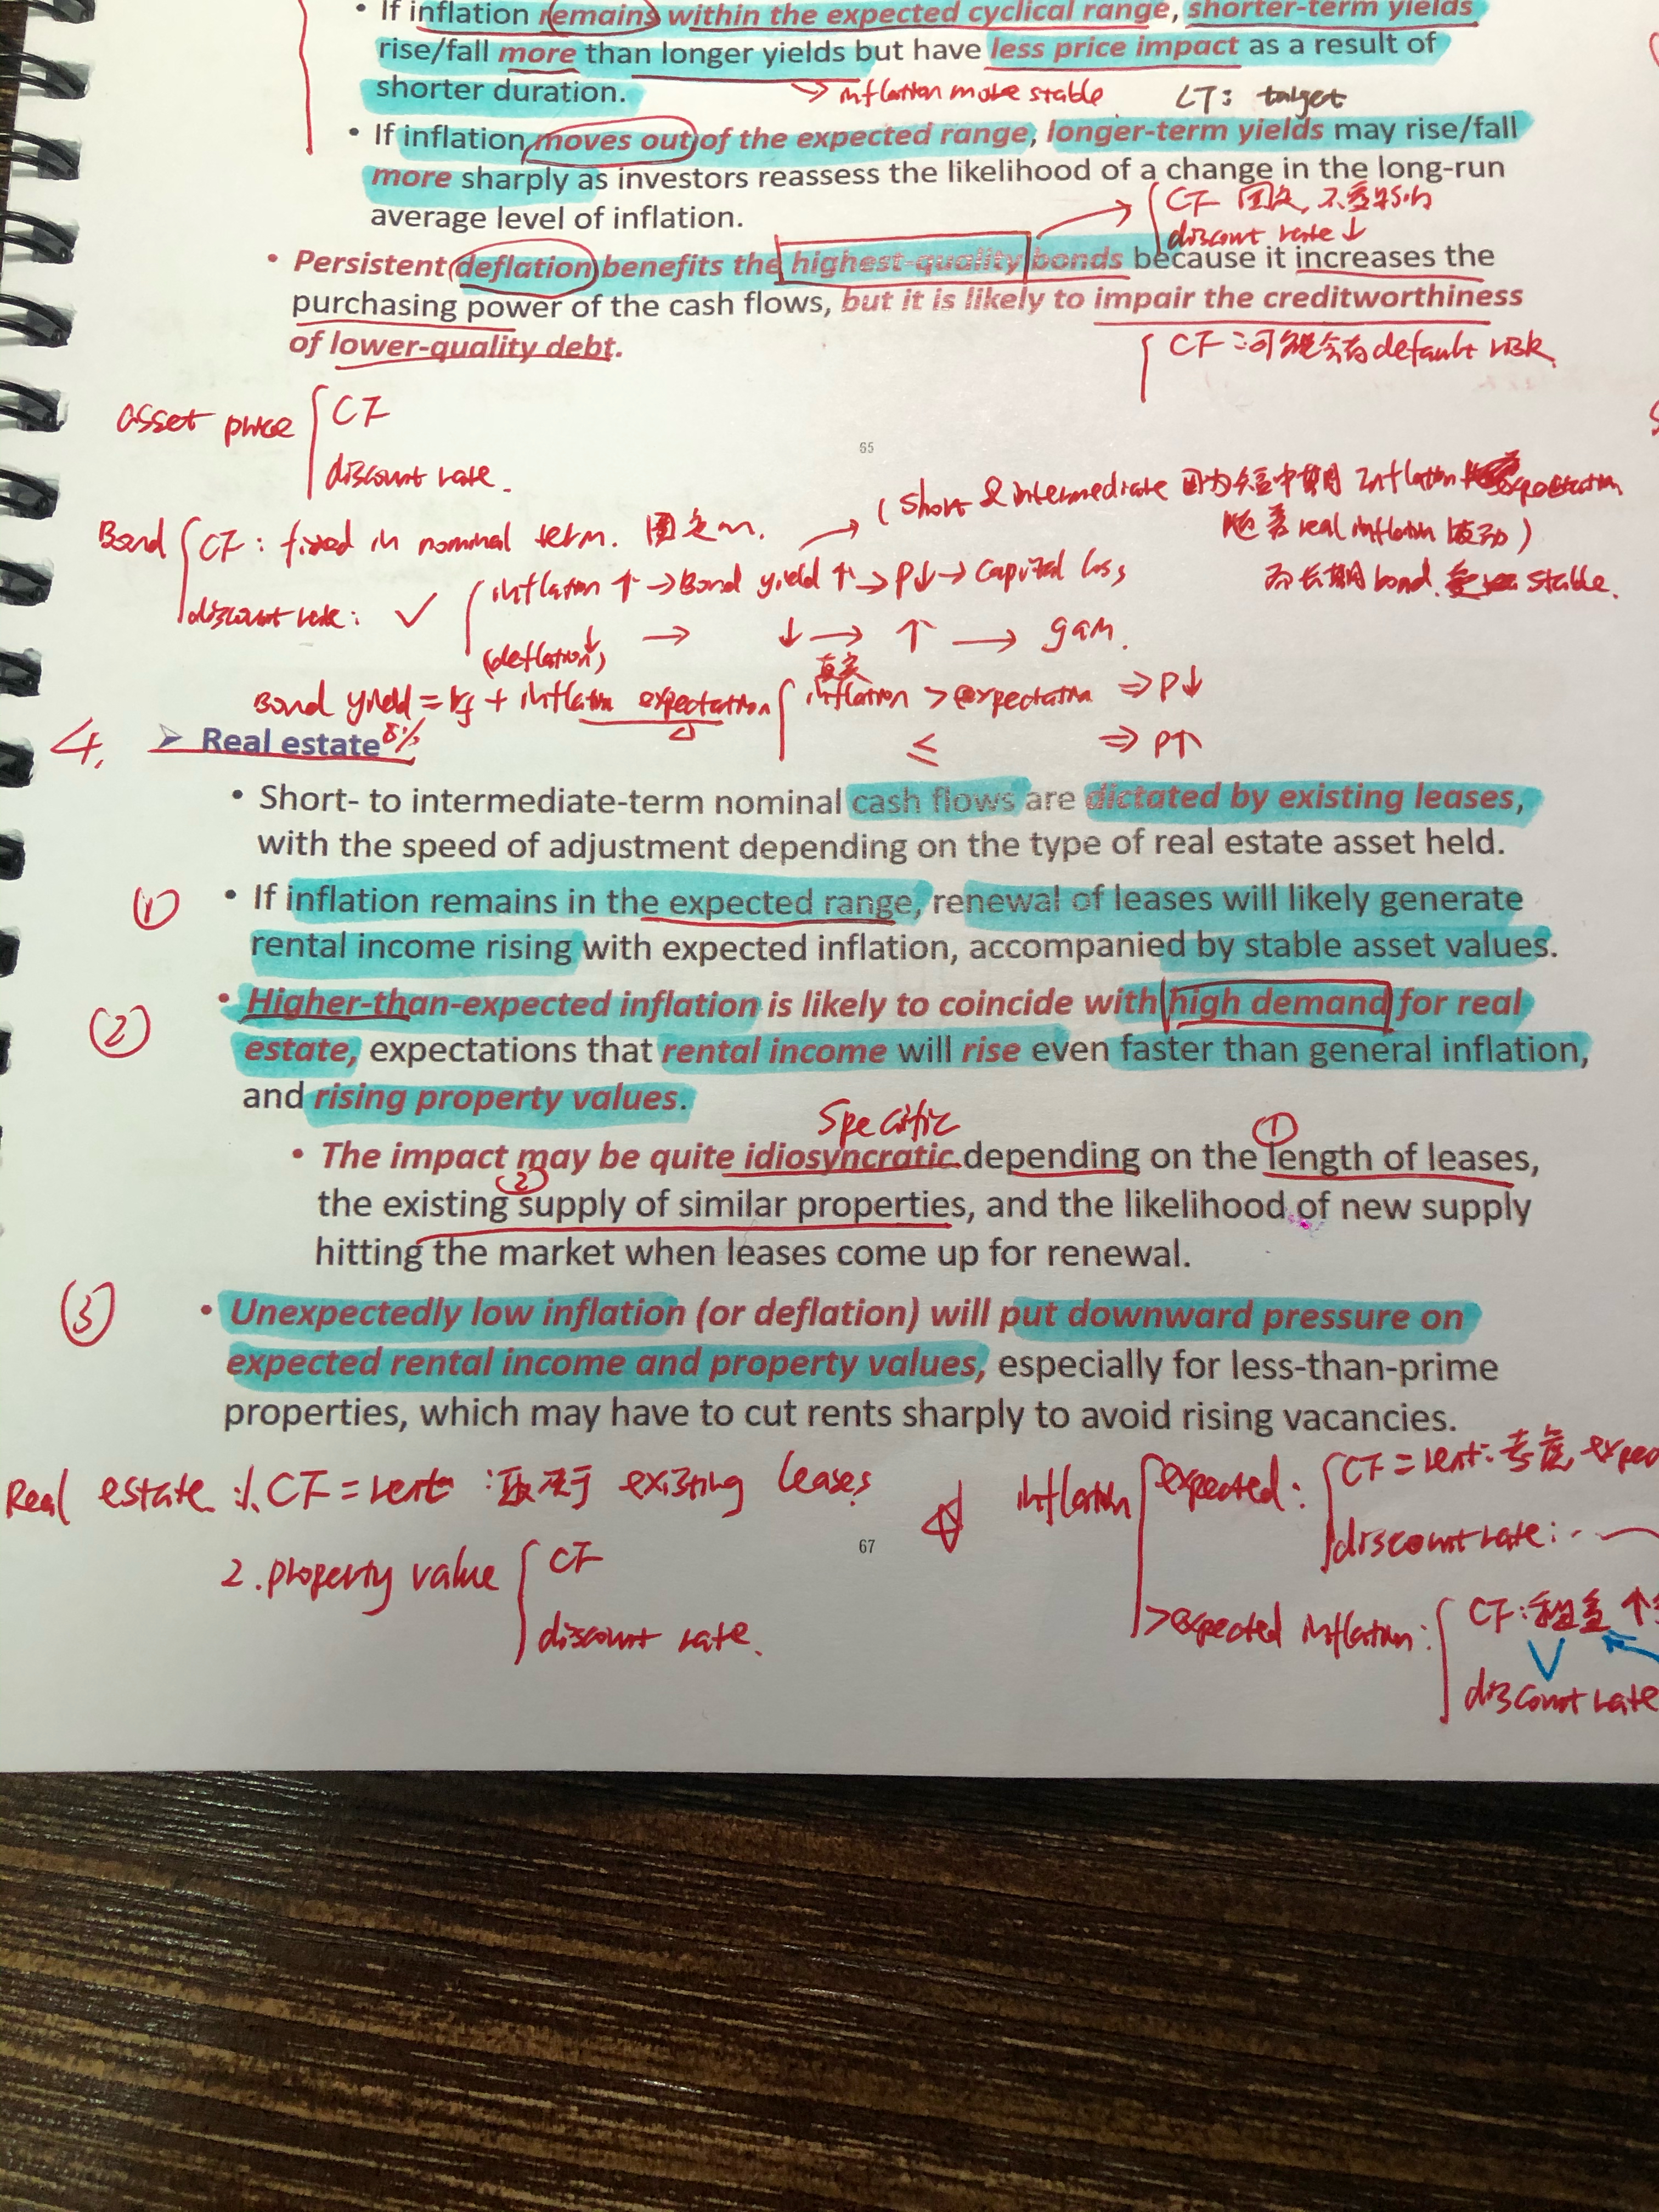 • If inflation remains within the expected cyclical range, shorter-term yields
rise/fall more than longer yields but have less price impact as a result of
shorter duration.
→ inflation more stable
LT: target
• If inflation moves out of the expected range, longer-term yields may rise/fall
more sharply as investors reassess the likelihood of a change in the long-run
average level of inflation.
CF 固定, 不受影响
discount rate ↓
• Persistent deflation benefits the highest-quality bonds because it increases the
purchasing power of the cash flows, but it is likely to impair the creditworthiness
of lower-quality debt.
CF: 可能会有default risk
asset price
CF
discount rate.
65
(short & intermediate 因为短中期 inflation expectation
随着 real inflation 波动)
而长期bond stable.
Bond
CF: fixed in nominal term. 固定的.
discount rate: ✓
inflation ↑ → Bond yield ↑ → P↓ → capital loss
(deflation↓) → ↓ → ↑ → gain.
Bond yield = rf + inflation expectation
真实
inflation > expectation ⇒ P↓
≤ ⇒ P↑
4.
➢ Real estate
8%
• Short- to intermediate-term nominal cash flows are dictated by existing leases,
with the speed of adjustment depending on the type of real estate asset held.
① • If inflation remains in the expected range, renewal of leases will likely generate
rental income rising with expected inflation, accompanied by stable asset values.
② • Higher-than-expected inflation is likely to coincide with high demand for real
estate, expectations that rental income will rise even faster than general inflation,
and rising property values.
Specific
①
• The impact may be quite idiosyncratic depending on the length of leases,
②
the existing supply of similar properties, and the likelihood of new supply
hitting the market when leases come up for renewal.
③ • Unexpectedly low inflation (or deflation) will put downward pressure on
expected rental income and property values, especially for less-than-prime
properties, which may have to cut rents sharply to avoid rising vacancies.
Real estate: 1. CF = rent: 取决于 existing leases
2. property value
CF
discount rate.
67
inflation
expected:
CF = rent: 考虑 expec
discount rate:
>expected inflation:
CF: 租金 ↑
discount rate